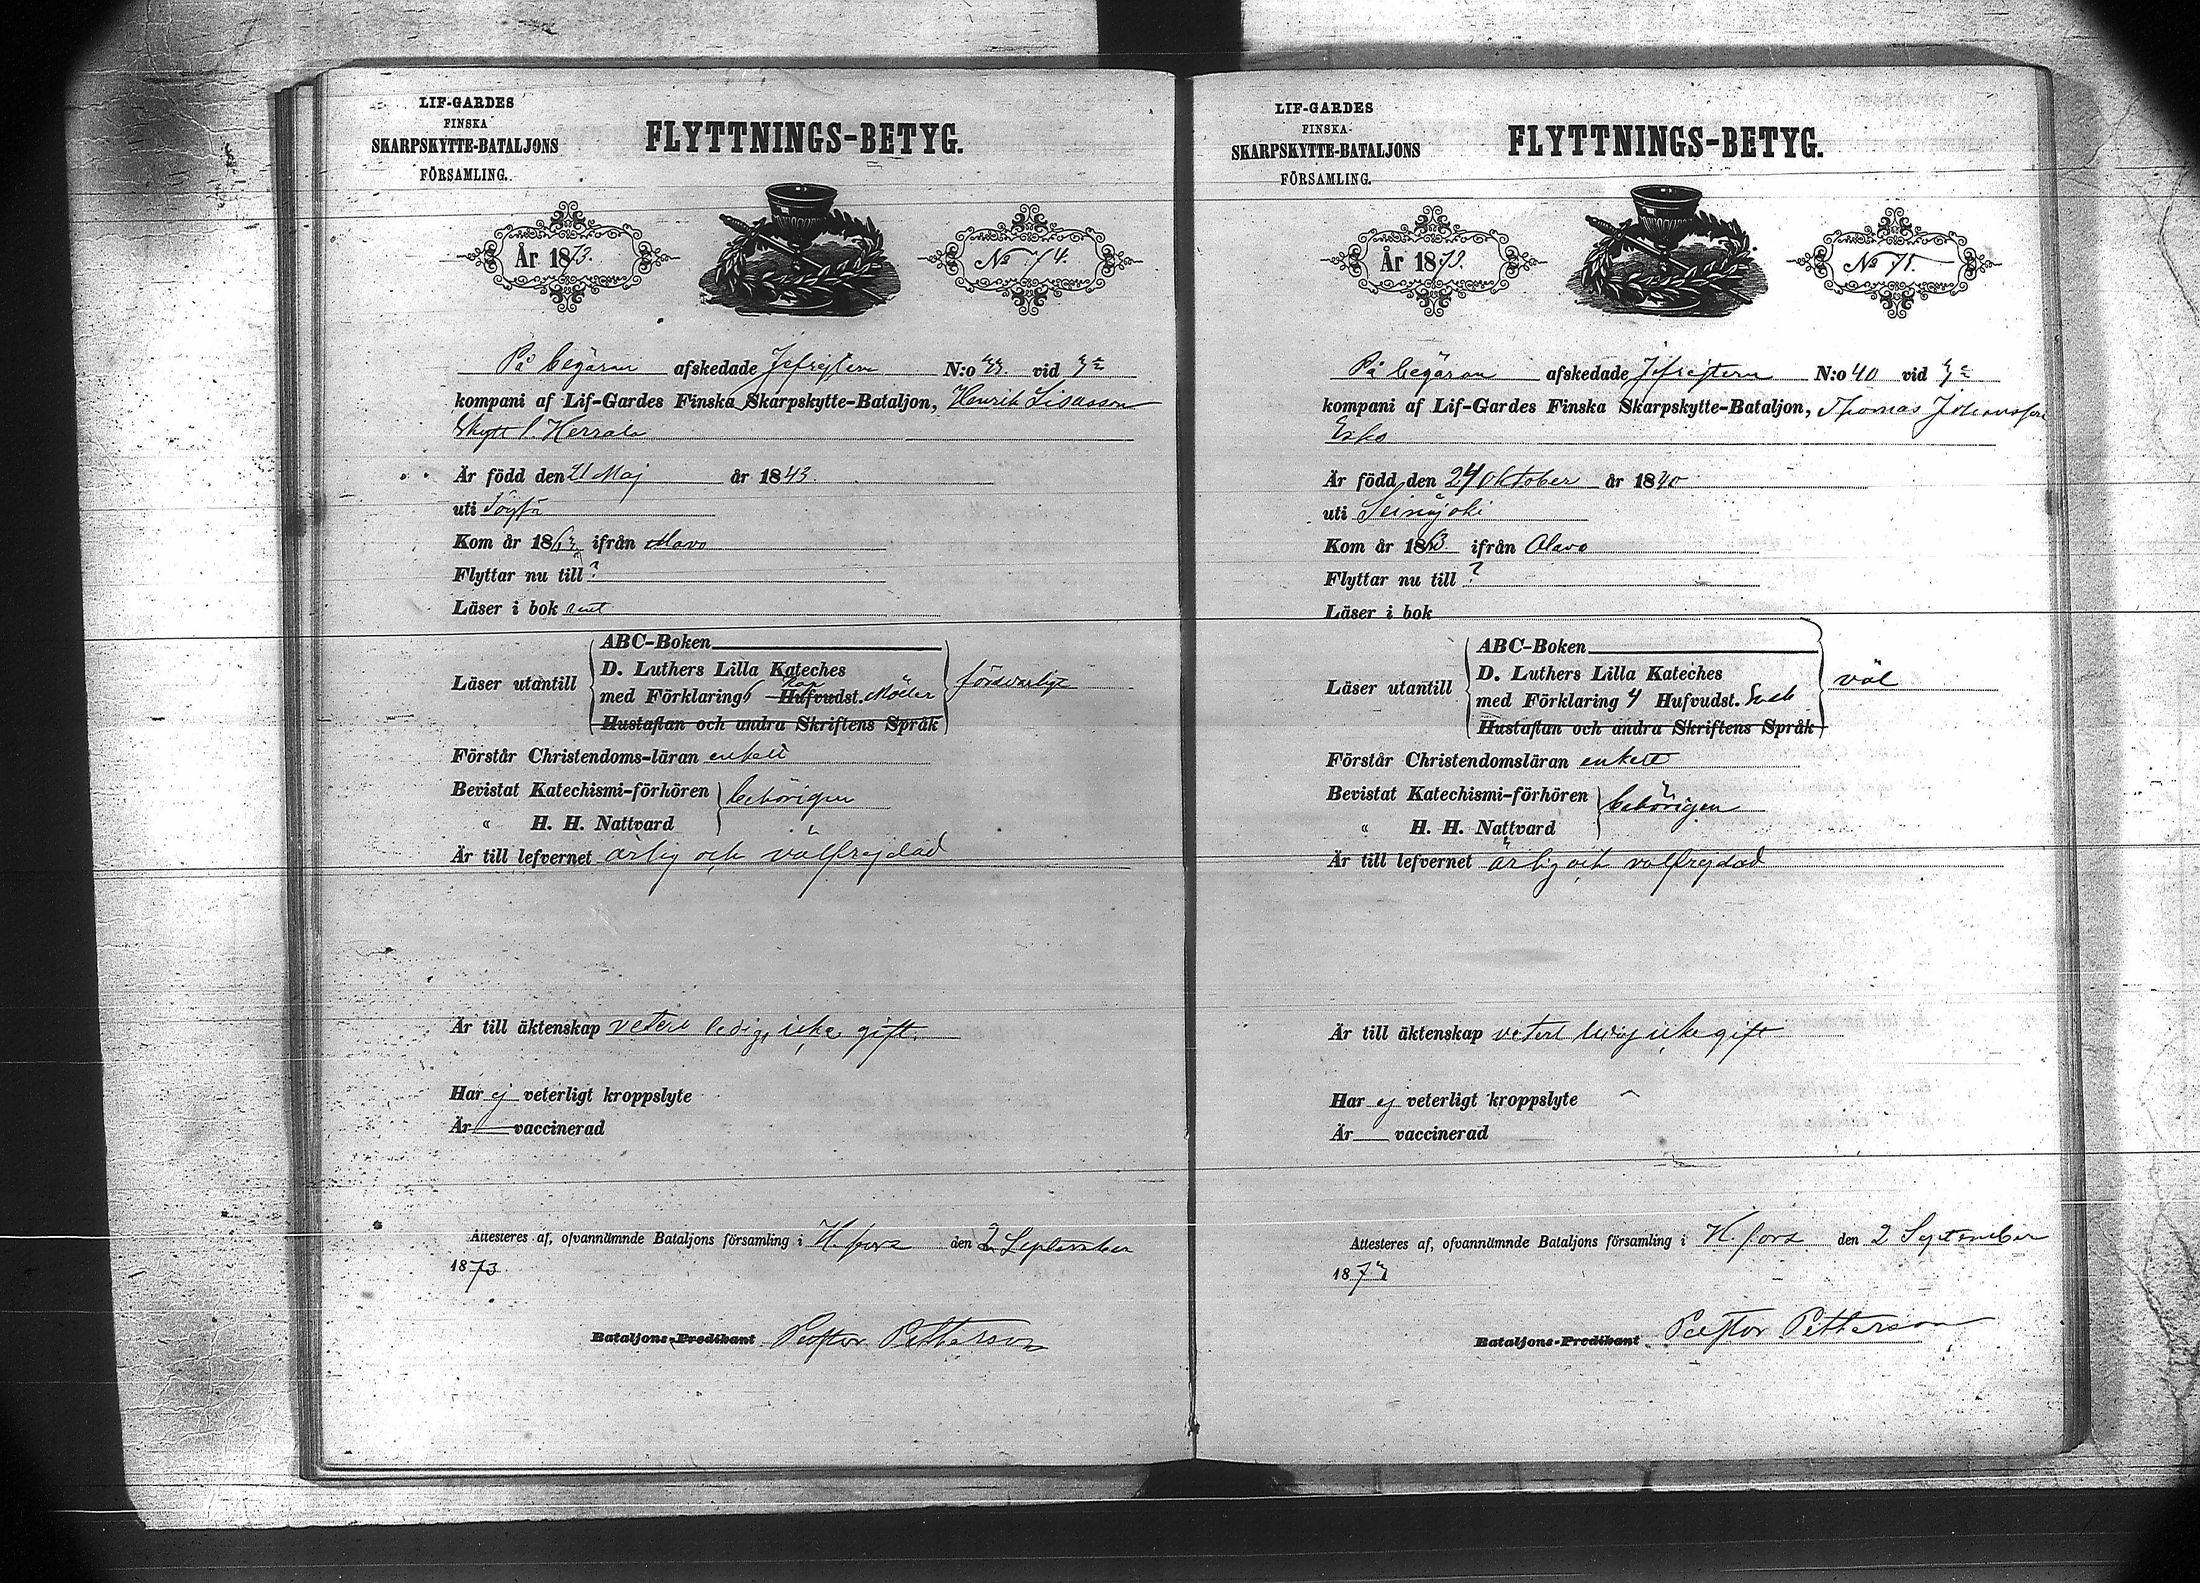 LIF-GARDES
FINSKA
SKARPSKYTTE-BATALJONS
FÖRSAMLING.
FLYTTNINGS-BETYG.
År 1873.
No 74.
På begäran afskedade Jefrejtern N:o 43. vid
kompani af Lif-Gardes Finska Skarpskytte-Bataljon, Henrik
Herrala
Är född den 21 Maj år 1843.
uti Töysä
Kom år 1863 ifrån Alavo
Flyttar nu till ?
Läser i bok rent
ABC-Boken
D. Luthers Lilla Kateches
Läser utantill
med Förklaring Hufvudst.
Hustaflan och andra Skriftens Språk
försvarligt
Förstår Christendoms-läran enkelt
Bevistat Katechismi-förhören
behörigen
" H. H. Nattvard
Är till lefvernet ärlig och välfrejdad
Är till äktenskap veterl ledig, icke gift.
Har ej veterligt kroppslyte
Är vaccinerad
Attesteres af, ofvannämnde Bataljons församling i H.fors den 2 September
1873.
Bataljons-Predikant Pastor Petterson
LIF-GARDES
FINSKA
SKARPSKYTTE-BATALJONS
FÖRSAMLING.
FLYTTNINGS-BETYG.
År 1873.
No 75.
På begäran afskedade Jefrejtern N:o 40 vid
kompani af Lif-Gardes Finska Skarpskytte-Bataljon, Thomas Johansson
Esko
Är född den 24 Oktober år 1840
uti Seinäjoki
Kom år 1863. ifrån Alavo
Flyttar nu till ?
Läser i bok
ABC-Boken
D. Luthers Lilla Kateches
Läser utantill
med Förklaring 4 Hufvudst. Sveb
Hustaflan och andra Skriftens Språk
väl
Förstår Christendomsläran enkelt
Bevistat Katechismi-förhören
behörigen
" H. H. Nattvard
Är till lefvernet ärlig och välfrejdad
Är till äktenskap veterl ledig icke gift
Har ej veterligt kroppslyte
Är vaccinerad
Attesteres af, ofvannämnde Bataljons församling i H.fors den 2 September
1873
Bataljons-Predikant Pastor Petterson